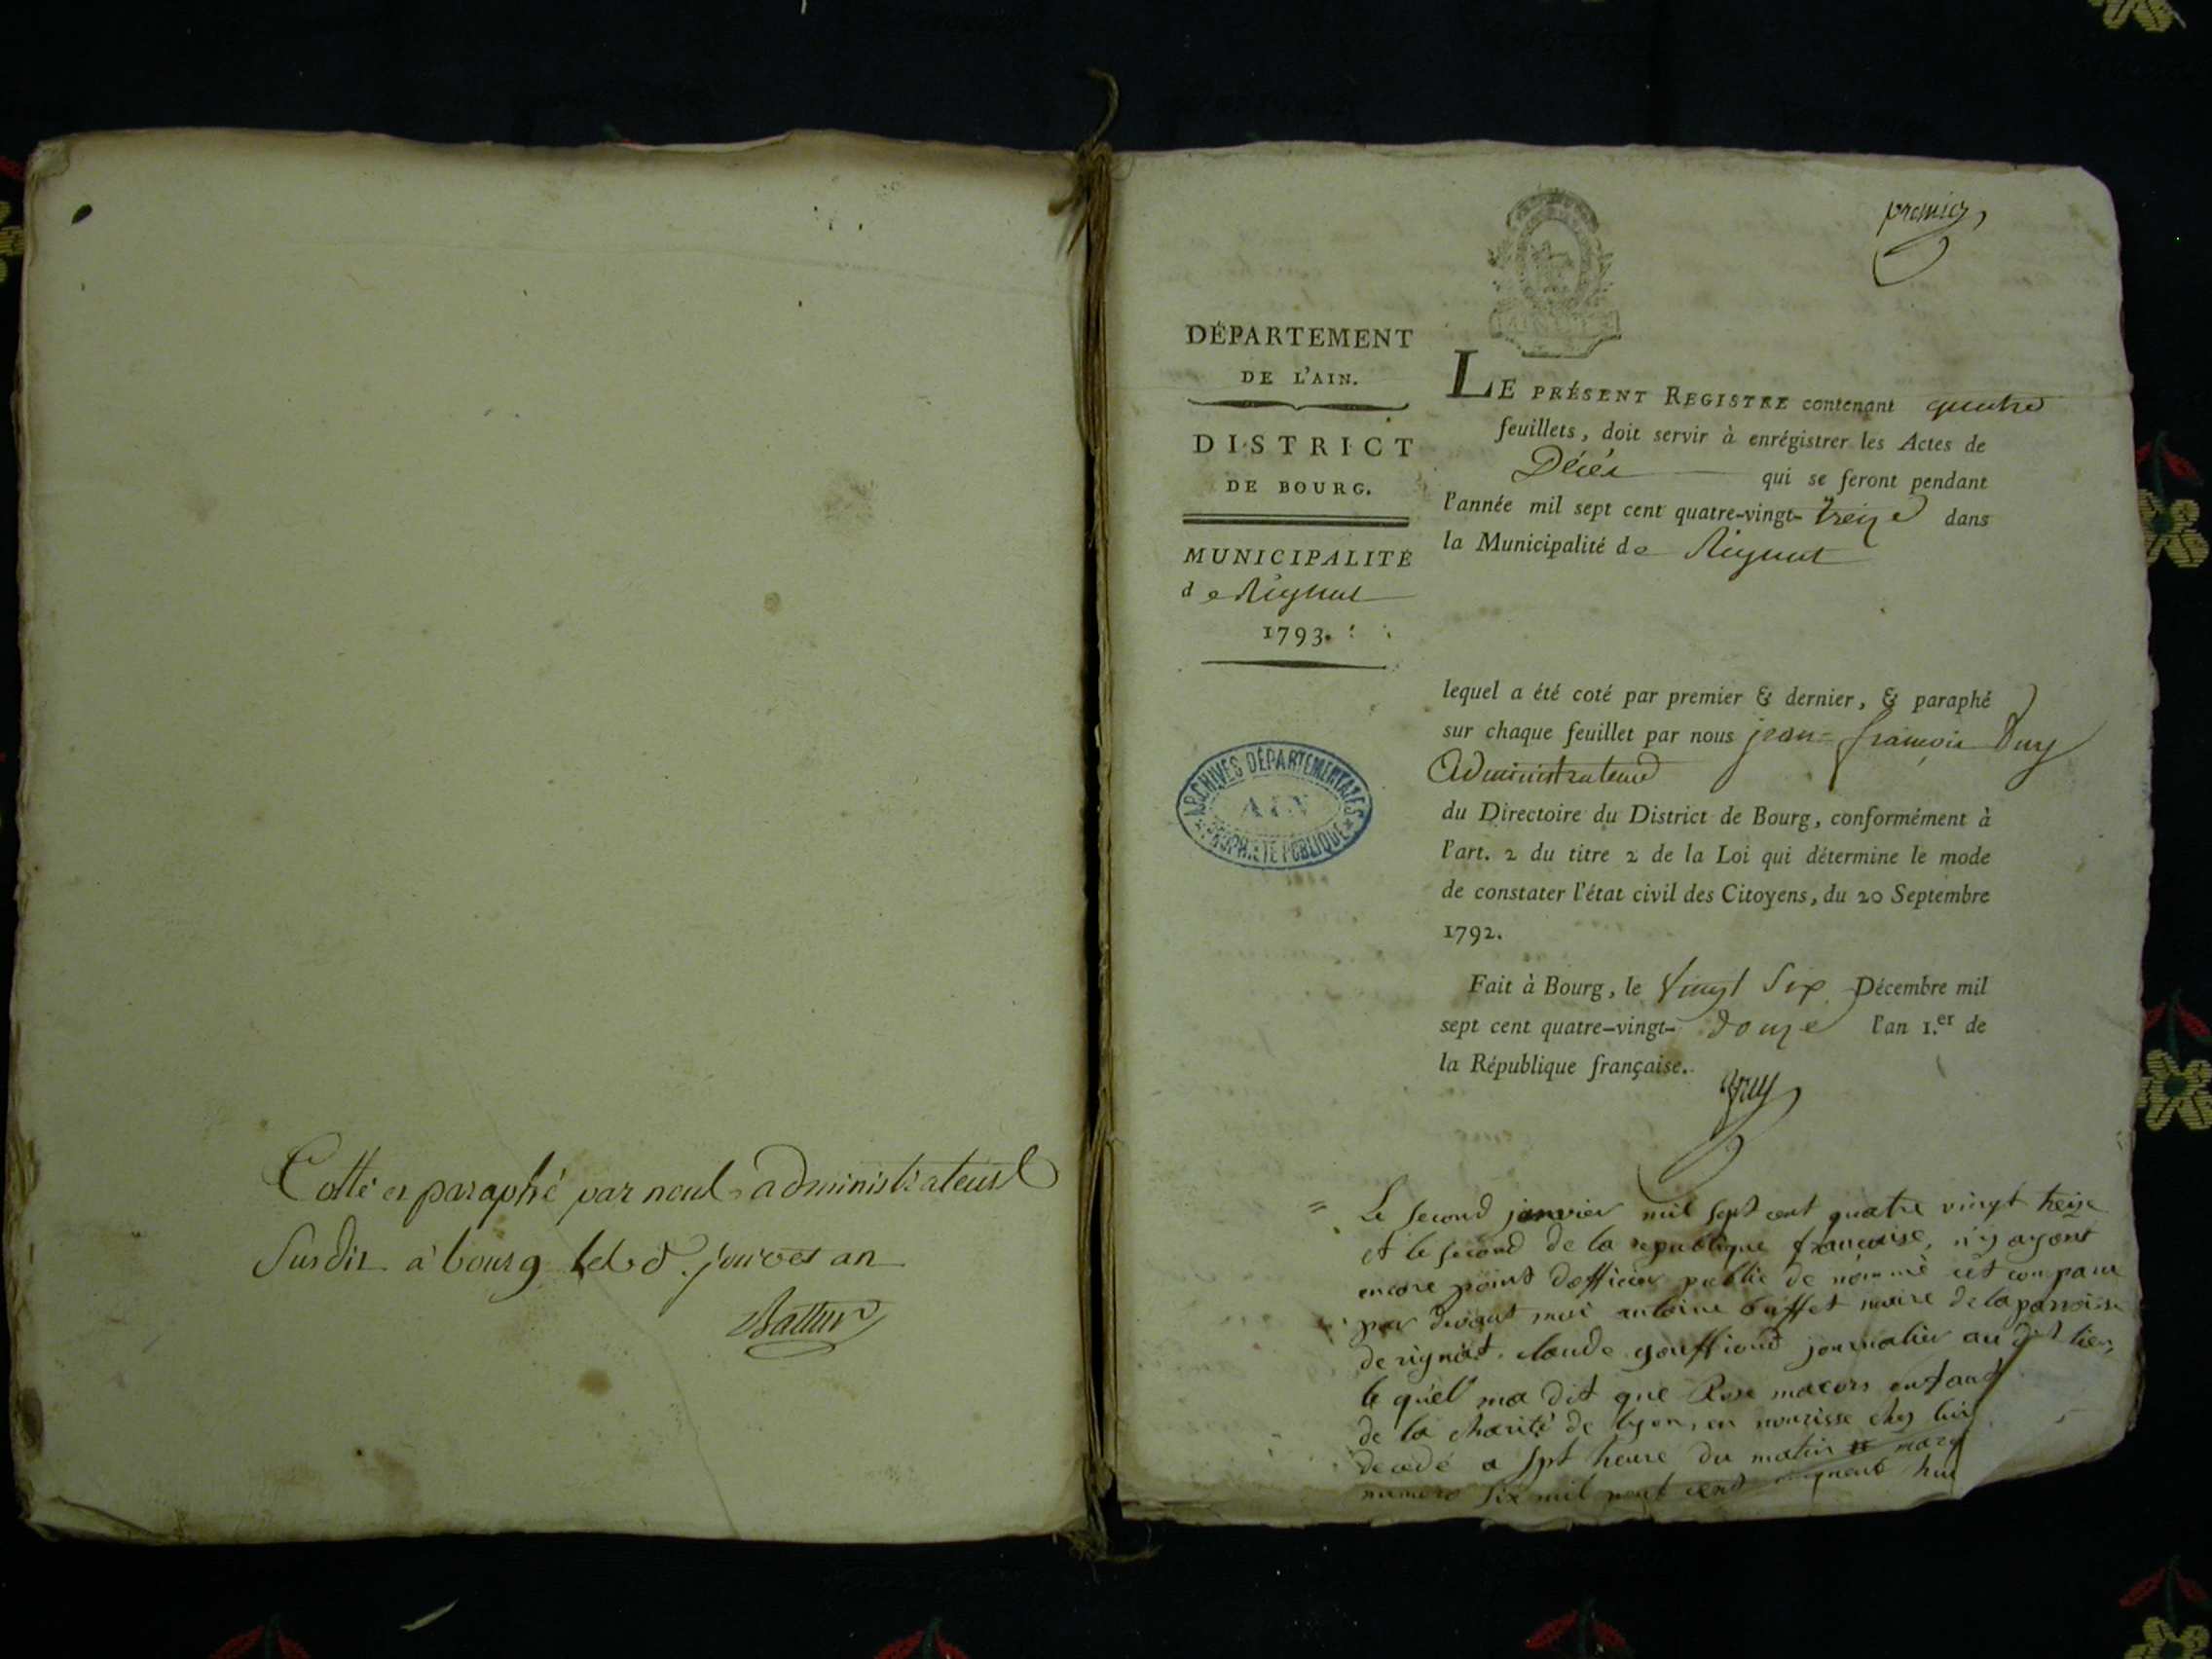 Cotté et paraphé par nous administrateur
Susdit à bourg lesd. jour et an
premier
DÉPARTEMENT
DE L'AIN.
DISTRICT
DE BOURG.
MUNICIPALITÉ
de Rignat
1793.
ARCHIVES DÉPARTEMENTALES
AIN
PROPRIÉTÉ PUBLIQUE
LE PRÉSENT REGISTRE contenant quatre
feuillets, doit servir à enrégistrer les Actes de
Décès qui se feront pendant
l'année mil sept cent quatre-vingt-treize dans
la Municipalité de Rignat
lequel a été coté par premier & dernier, & paraphé
sur chaque feuillet par nous jean-françois
Administrateur
du Directoire du District de Bourg, conformément à
l'art. 2 du titre 2 de la Loi qui détermine le mode
de constater l'état civil des Citoyens, du 20 Septembre
1792.
Fait à Bourg, le Vingt Six Décembre mil
sept cent quatre-vingt-douze l'an 1.er de
la République française.
Le second janvier mil sept cent quatre vingt treize
et le second de la republique francoise, n'y ayant
encore point dofficier public de nommé est comparu
par devant moi antoine buffet maire de la parroisse
de rignat. claude journalier au dit lieu,
le quel ma dit que Rose enfant
de la charité de lyon, en nourisse chez lui
decedé a sept heure du matin
numero six mil neuf cent